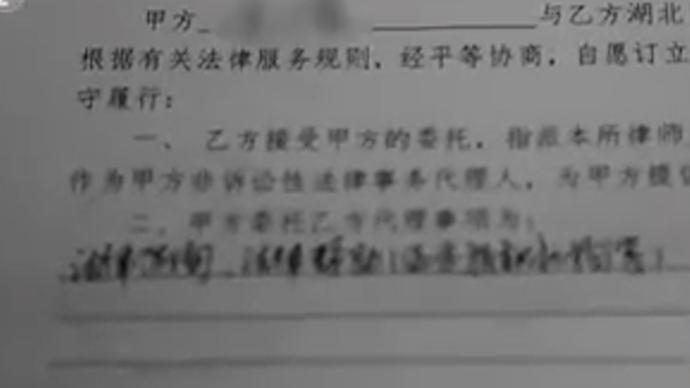 甲方 与乙方湖北
根据有关法律服务规则，经平等协商，自愿订立
守履行：
一、 乙方接受甲方的委托，指派本所律师
作为甲方非诉讼性法律事务代理人，为甲方提供
二、甲方委托乙方代理事项与：
法律咨询、法律